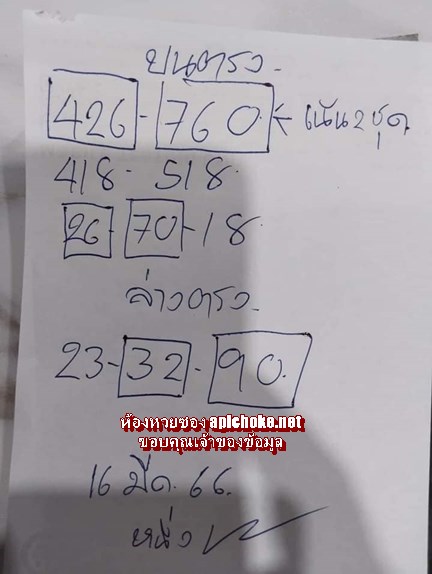 บนตรง -
426 - 760 ← เน้น 2 ชุด
418 - 518
26 - 70 - 18
ล่างตรง -
23 - 32 - 90
ห้องหวยซอง apichoke.net
ขอบคุณเจ้าของข้อมูล
16 มีค. 66.
หนึ่ง